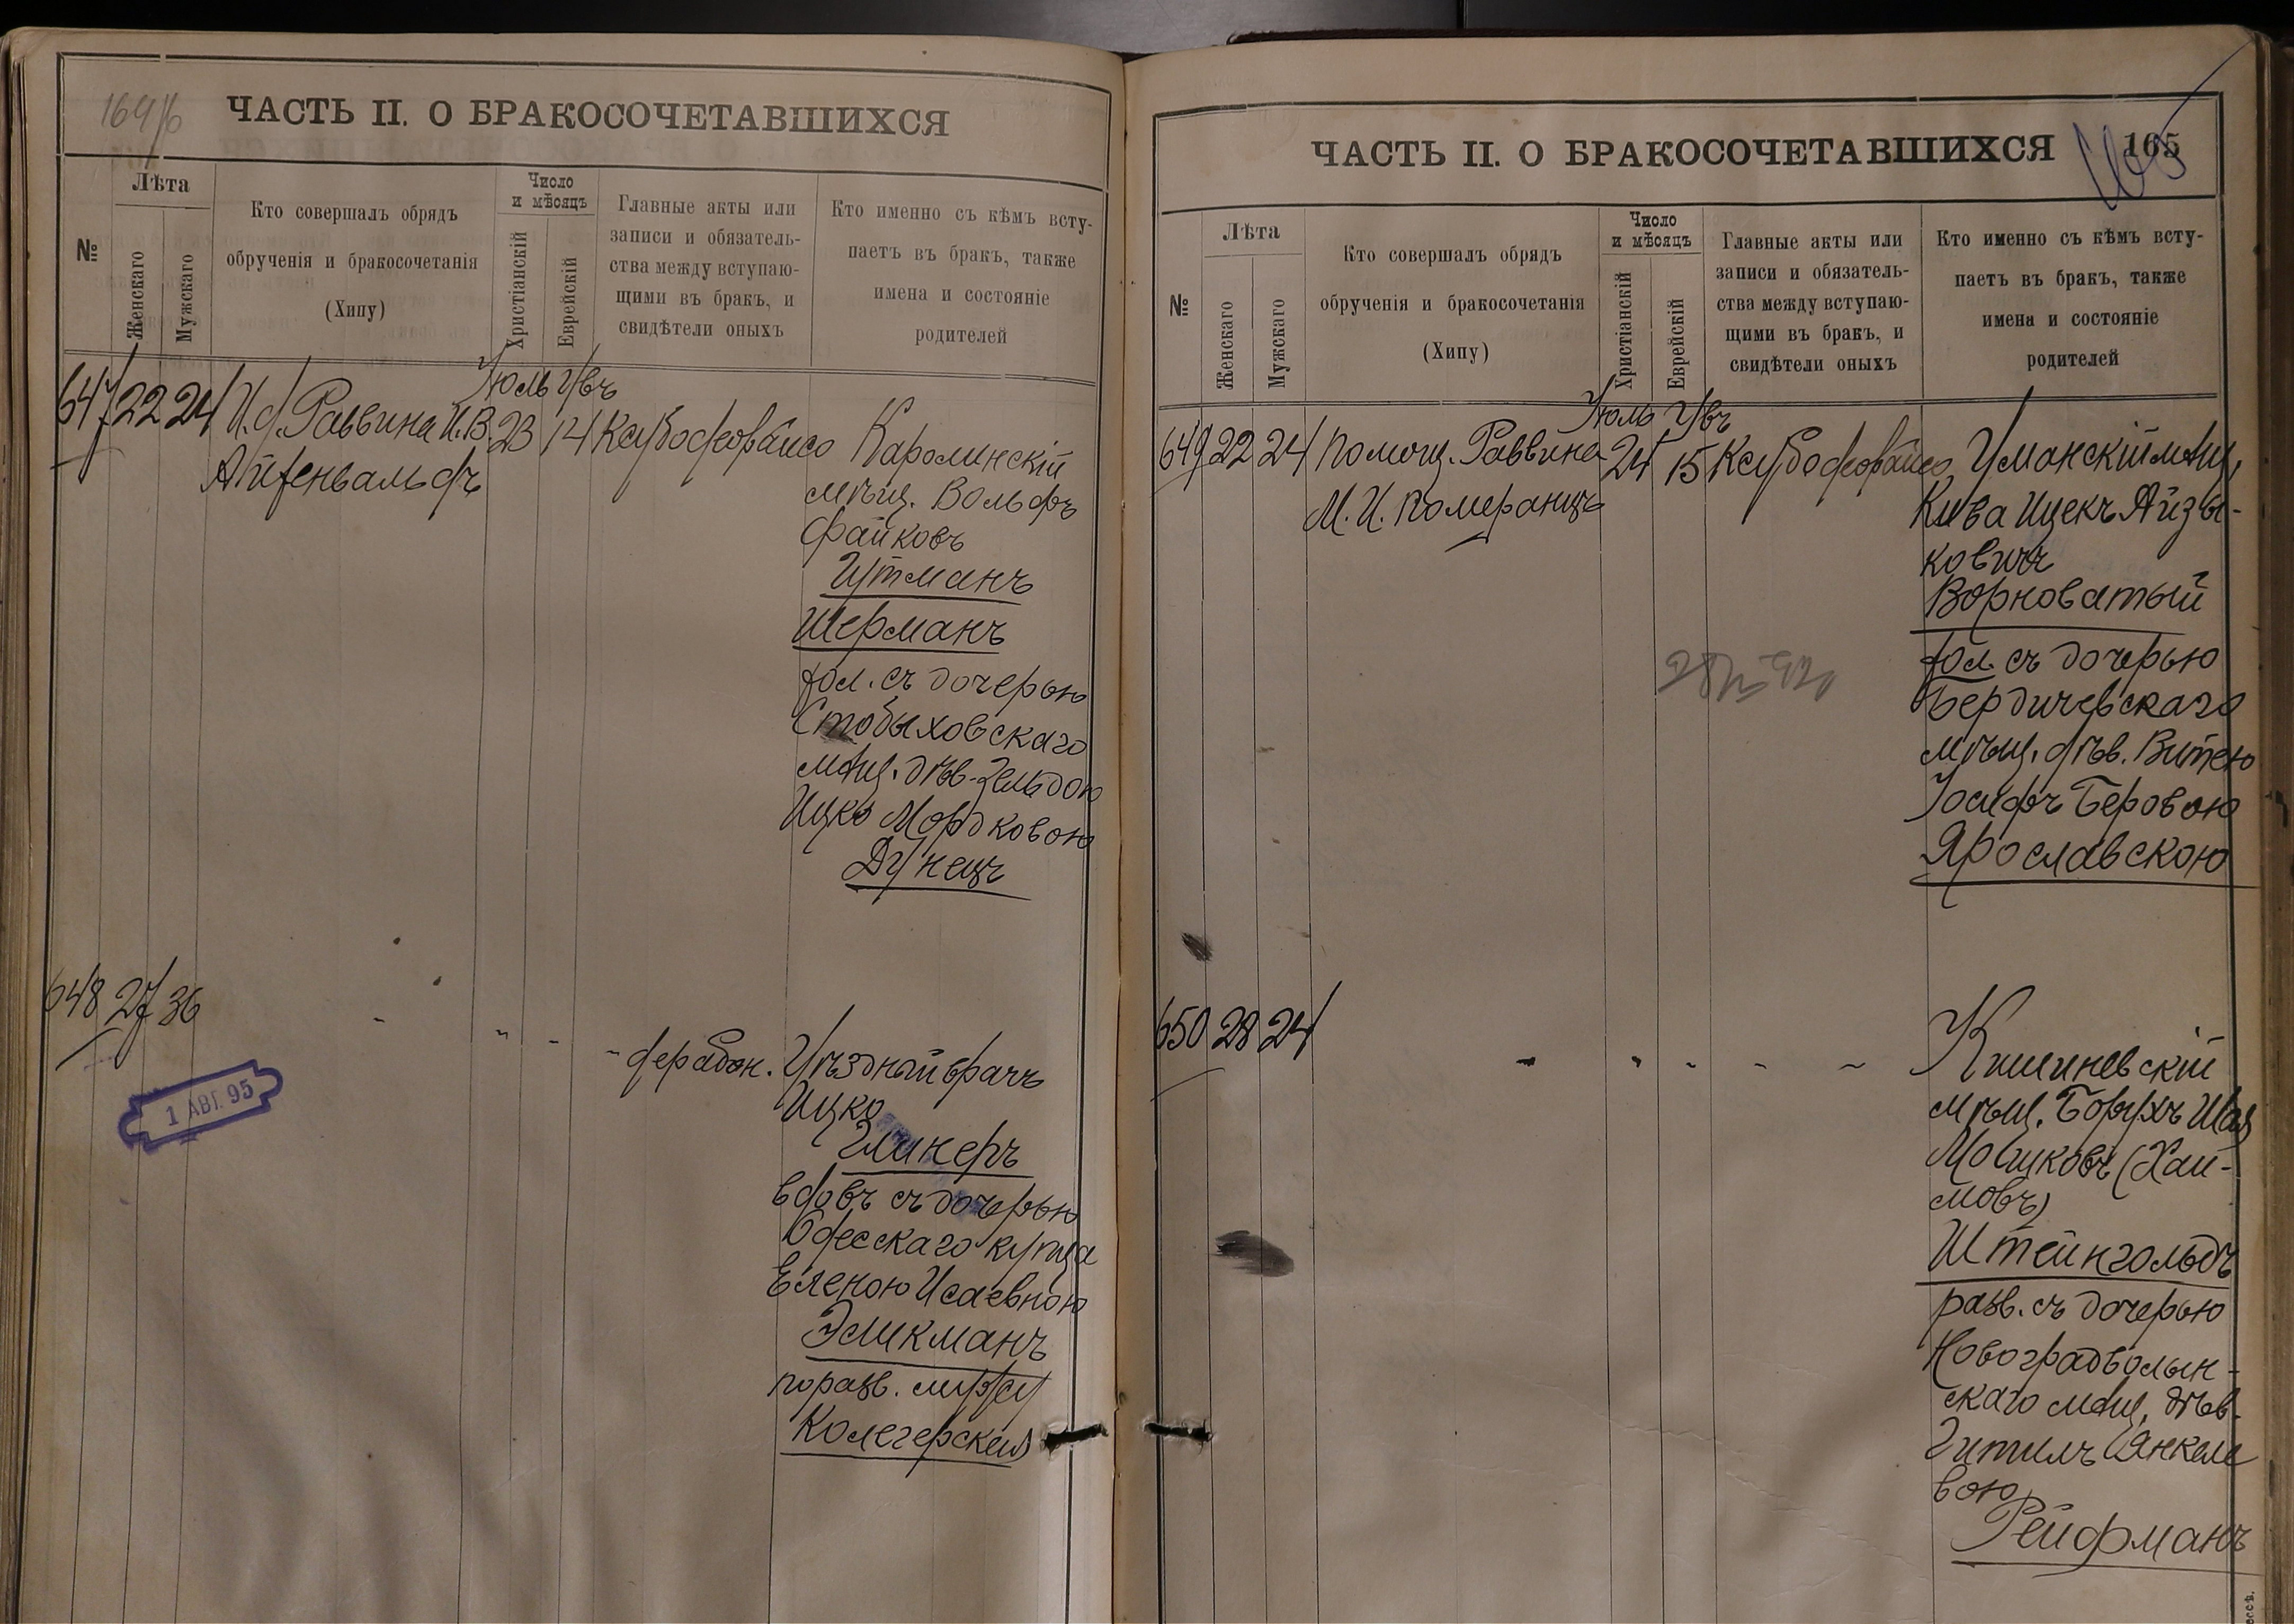 164/б
ЧАСТЬ II. О БРАКОСОЧЕТАВШИХСЯ
№
Лѣта
Женскаго
Мужскаго
Кто совершалъ обрядъ
обрученія и бракосочетанія
(Хипу)
Число
и мѣсяцъ
Христіанскій
Еврейскій
Главные акты или
записи и обязатель-
ства между вступаю-
щими въ бракъ, и
свидѣтели оныхъ
Кто именно съ кѣмъ всту-
паетъ въ бракъ, также
имена и состояніе
родителей
Іюль Увъ
647 22 24 И. д. Раввина И. В. 23 14
Каролинскій
мѣщ. Вольфъ
Файковъ
Гутманъ
Шерманъ
хол. съ дочерью
Стобыховскаго
мѣщ. дѣв. Зельдою
Ицко Мордковою
Дунецъ
648 27 36
Уѣздный врачъ
Ицко
Глинеръ
вдовъ съ дочерью
Одесскаго купца
Еленою Исаевною
Эликманъ
по разв. мужу
1 АВГ. 95
ЧАСТЬ II. О БРАКОСОЧЕТАВШИХСЯ
165
165
№
Лѣта
Женскаго
Мужскаго
Кто совершалъ обрядъ
обрученія и бракосочетанія
(Хипу)
Число
и мѣсяцъ
Христіанскій
Еврейскій
Главные акты или
записи и обязатель-
ства между вступаю-
щими въ бракъ, и
свидѣтели оныхъ
Кто именно съ кѣмъ всту-
паетъ въ бракъ, также
имена и состояніе
родителей
Іюль Увъ
649 22 24 Помощ. Раввина 24 15
М. И. Померанцъ
Уманскій мѣщ.
Кива Ицекъ Айзы-
ковичъ
Ворноватый
хол. съ дочерью
Бердичевскаго
мѣщ. дѣв. Витею
Іосифъ Беровою
Ярославскою
650 28 24
Кишиневскій
мѣщ. Борухъ Шая
Мошковъ (Хаи-
мовъ)
Штейнгольдъ
разв. съ дочерью
Новоградволын-
скаго мѣщ. дѣв.
Гитилъ Янкеле
вою
Рейфманъ